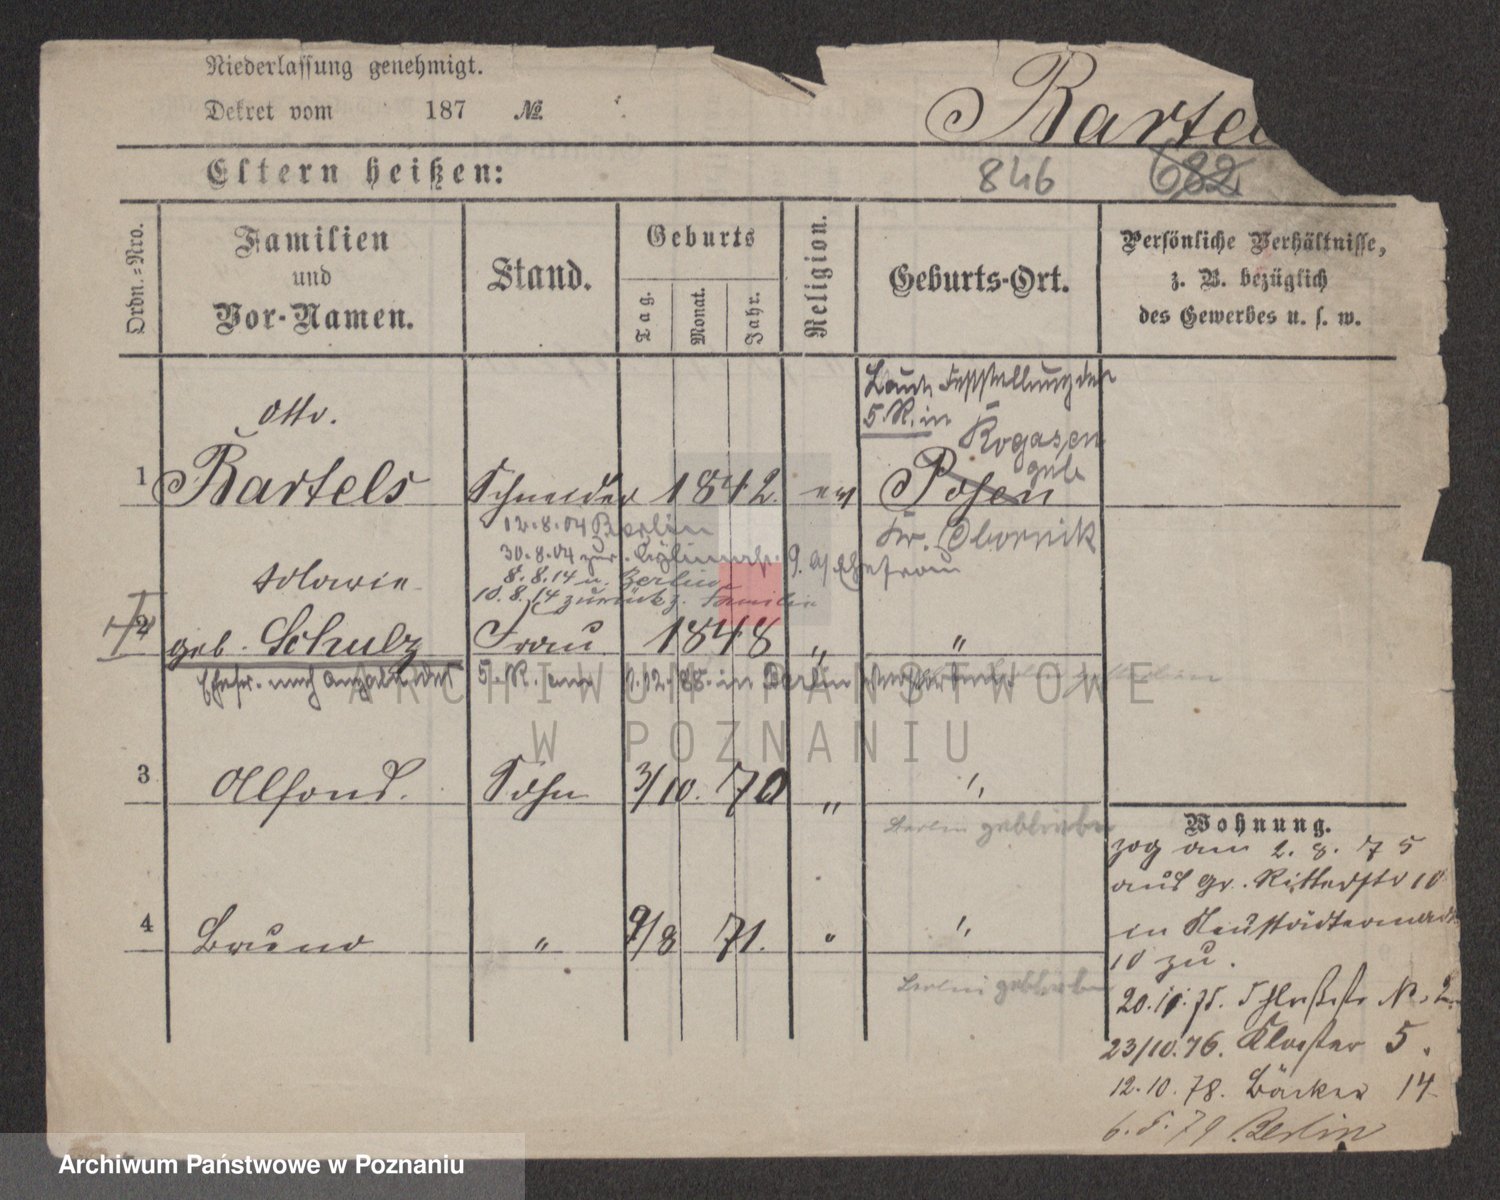 Niederlassung genehmigt.
Dekret vom 187 №
Bartel
Eltern heißen:
846 682
Ordn.-Nro.
Familien
und
Vor-Namen.
Stand.
Geburts
Tag.
Monat.
Jahr.
Religion.
Geburts-Ort.
Persönliche Verhältnisse,
z. B. bezüglich
des Gewerbes u. s. w.
Laut Feststellung der
5. R. in Rogasen
geb
Otto.
1 Bartels Schneider 1842. ev Posen
Kr. Obornik
12.8.04 Berlin
30.8.04 zur. 9. a/ Ehefrau
8.8.14 n. Berlin
10.8.14 zurück z. Familie
2 geb. Schulz Frau 1848 " "
Ehefr. nach 5. R. am in Berlin
ARCHIWUM PAŃSTWOWE
W POZNANIU
3 Alfons. Sohn 3/10. 70 " "
Berlin geblieben
4 Bruno " 9/8 71. " "
Berlin geblieben
Wohnung.
zog am 2. 8. 75
aus gr. Ritterstr 10
in Neustädtermarkt
10 zu.
20.11.75. N. 2.
23/10.76. Kloster 5.
12.10.78. Bäcker 14
6.5.79 Berlin
Archiwum Państwowe w Poznaniu